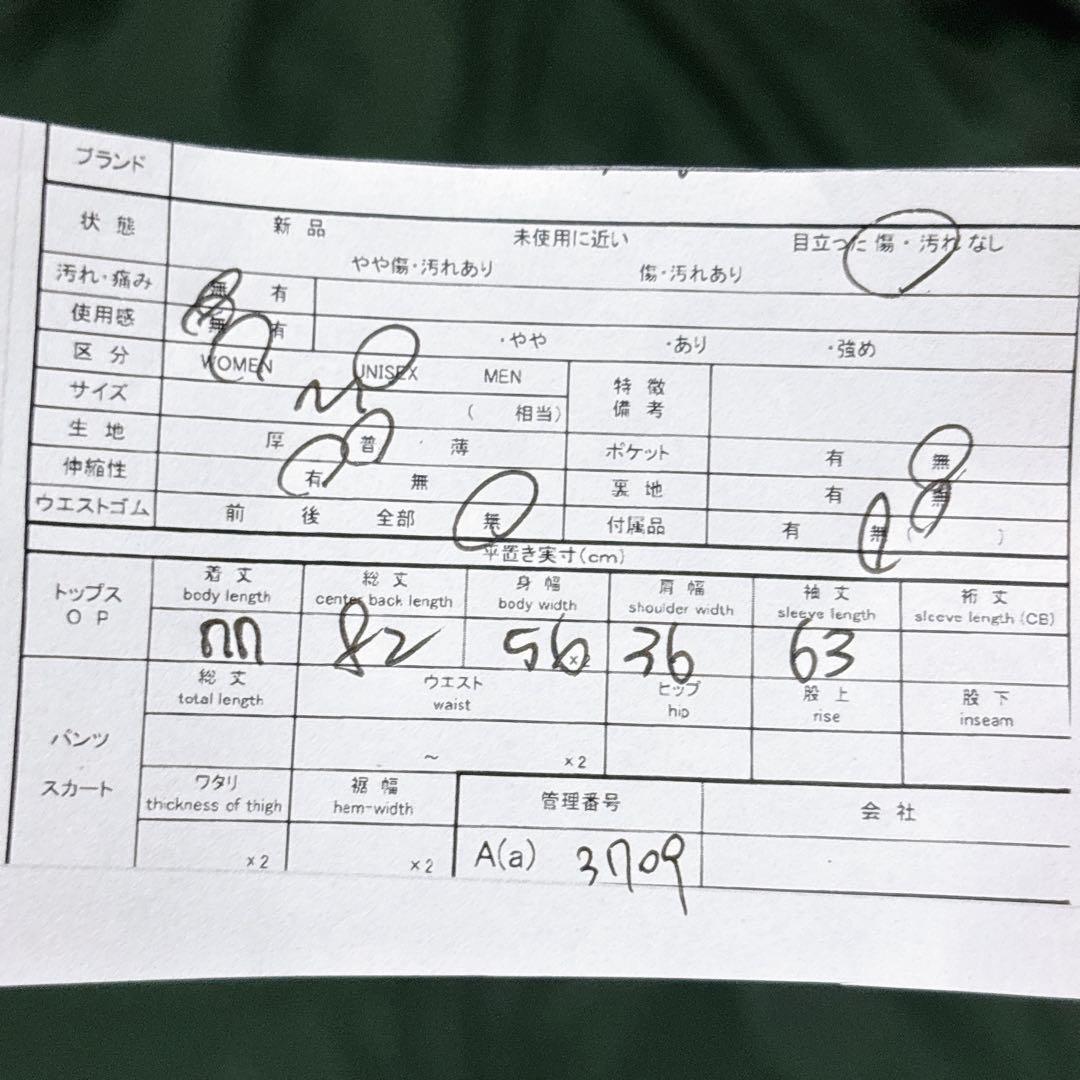 ブランド
状態 新品 未使用に近い 目立った傷・汚れなし
やや傷・汚れあり 傷・汚れあり
汚れ・痛み 無 有
使用感 無 有 ・やや ・あり ・強め
区分 WOMEN UNISEX MEN 特徴備考
サイズ M ( 相当)
生地 厚 普 薄 ポケット 有 無
伸縮性 有 無 裏地 有 無
ウエストゴム 前 後 全部 無 付属品 有 無 ( )
平置き実寸(cm)
トップス OP 着丈 総丈 身幅 肩幅 袖丈 裄丈
body length center back length body width shoulder width sleeve length sleeve length (CB)
77 82 56×2 36 63
パンツ スカート 総丈 ウエスト ヒップ 股上 股下
total length waist hip rise inseam
～ ×2
ワタリ 裾幅 管理番号 会社
thickness of thigh hem-width
×2 ×2 A(a) 3709